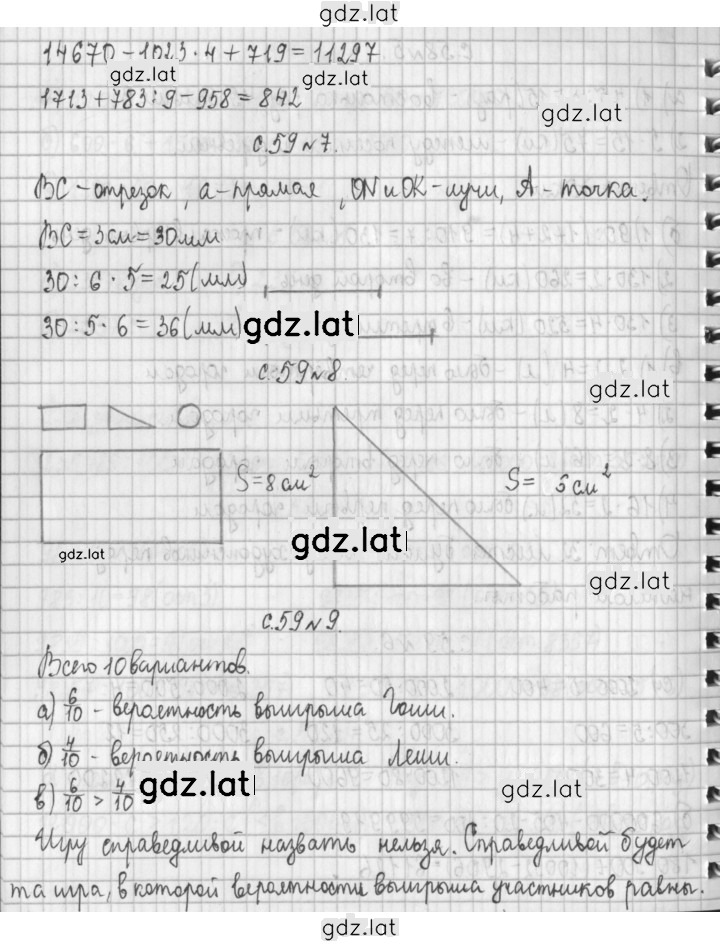 gdz.lat
14670 - 1023 · 4 + 719 = 11297
gdz.lat
gdz.lat
1713 + 783 : 9 - 958 = 842
gdz.lat
с.59 №7.
BC - отрезок, a - прямая, ON и OK - лучи, A - точка.
BC = 3 см = 30 мм
30 : 6 · 5 = 25 (мм)
30 : 5 · 6 = 36 (мм)
gdz.lat
с.59 №8.
gdz.lat
S = 8 см²
S = 6 см²
gdz.lat
gdz.lat
gdz.lat
с.59 №9.
Всего 10 вариантов.
а) 6/10 - вероятность выигрыша Гоши.
б) 4/10 - вероятность выигрыша Леши.
в) 6/10 > 4/10
gdz.lat
gdz.lat
Игру справедливой назвать нельзя. Справедливой будет
та игра, в которой вероятности выигрыша участников равны.
gdz.lat